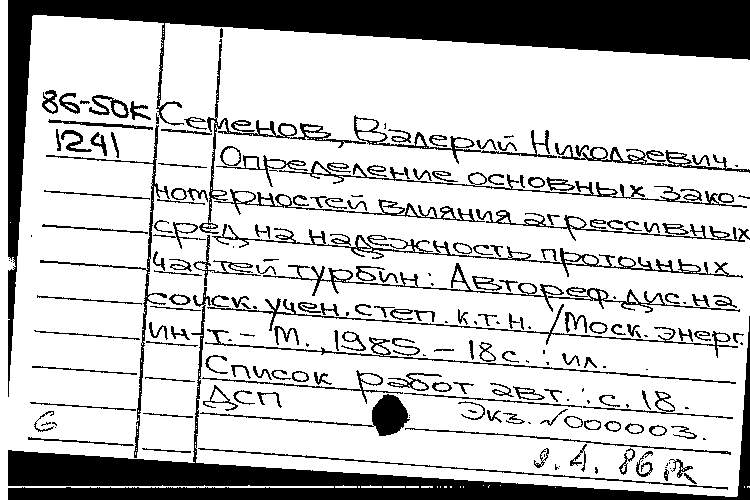 86-50К Семенов, Валерий Николаевич.
1241
Определение основных зако-
номерностей влияния агрессивных
сред на надежность проточных
частей турбин: Автореф. дис. на
соиск. учен. степ. к.т.н. / Моск. энерг.
ин-т. - М., 1985. - 18 с. : ил.
Список работ авт.: с. 18.
ДСП
Экз. №000003.
6
9. 4. 86 РК